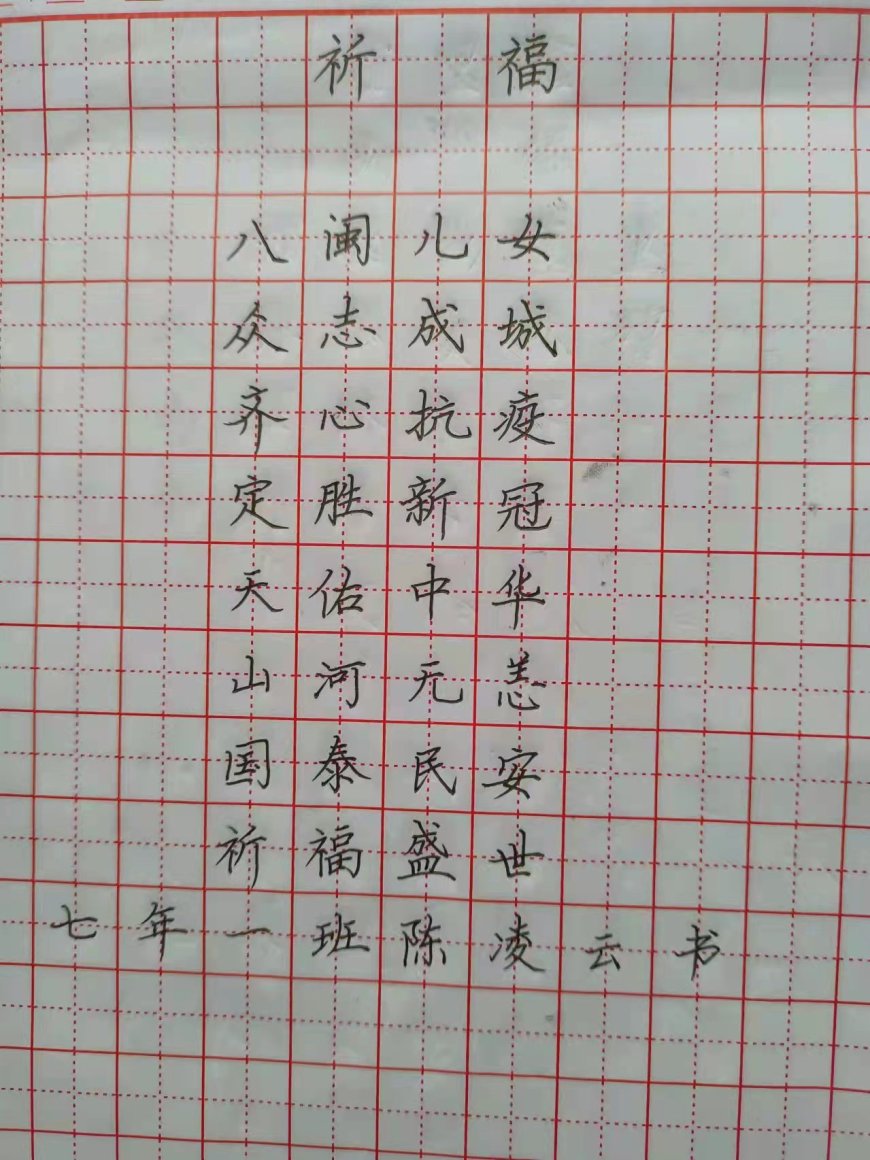 祈福
八闽儿女
众志成城
齐心抗疫
定胜新冠
天佑中华
山河无恙
国泰民安
祈福盛世
七年一班陈凌云书